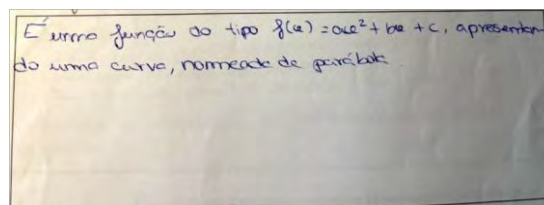 É uma função do tipo f(x) = ax² + bx + c, apresentan
do uma curva, nomeada de parábola.